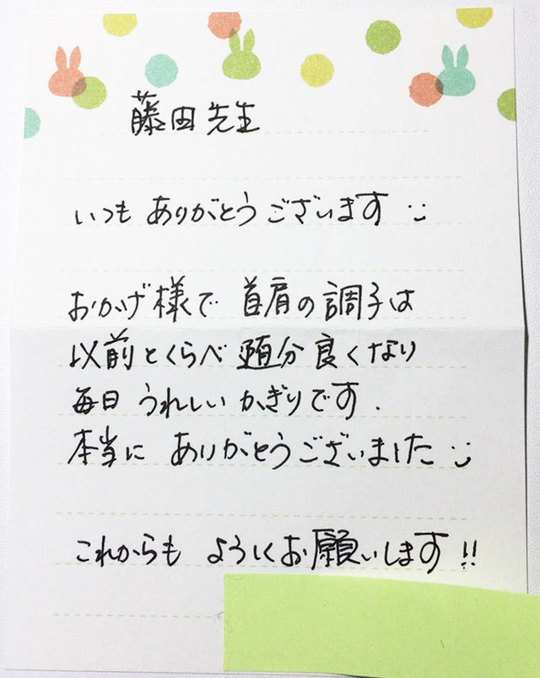 藤田先生
いつも ありがとうございます
おかげ様で 首肩の調子は
以前とくらべ 随分 良くなり
毎日 うれしい かぎりです.
本当に ありがとうございました
これからも よろしくお願いします!!